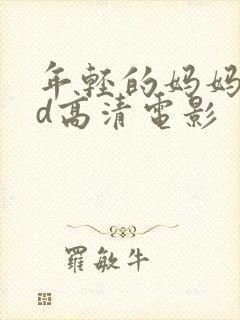 年轻的妈妈
d高清電影
羅敏牛